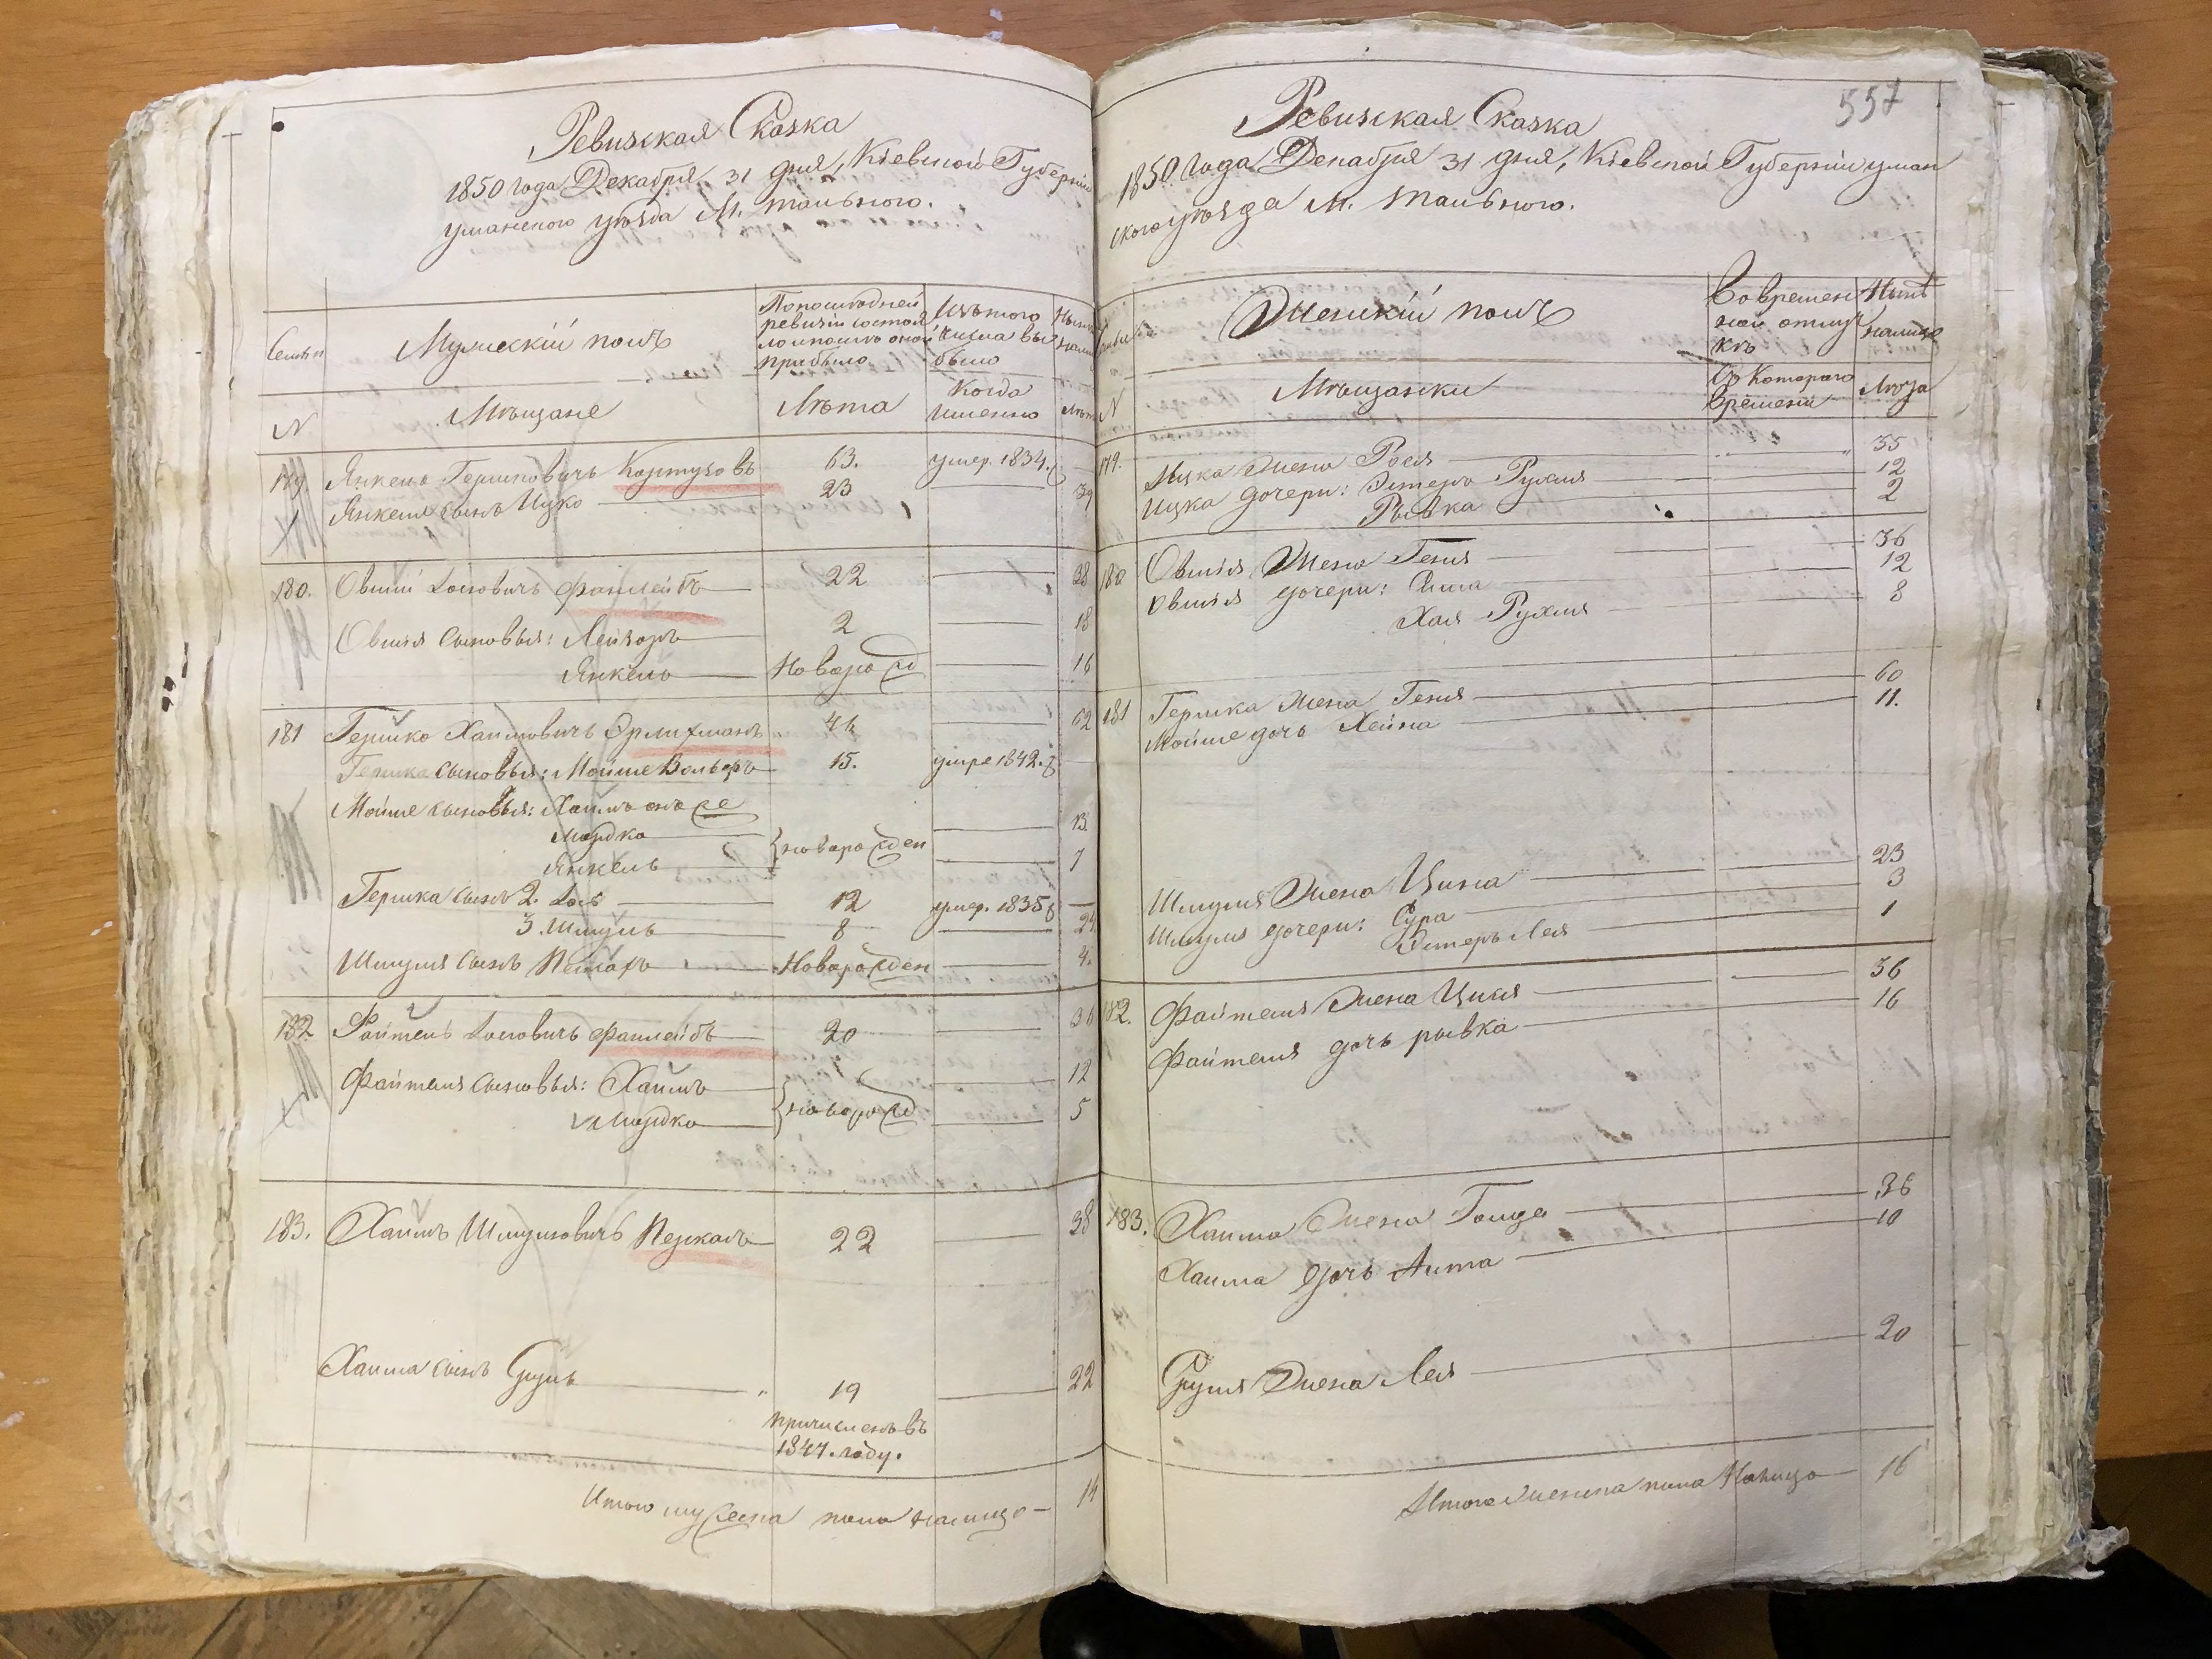 Ревизская Сказка
1850 года Декабря 31 дня, Кіевской Губерніи
уманского уѣзда М. Тального.
Семьи
Мужескій полъ
По послѣдней
ревизіи состоя
ло и послѣ оной
прибыло
Изъ того
числа вы
было
Нынѣ
N
Мѣщане
Лѣта
Когда
именно
Лѣта
179 Янкель Гершковичъ Кортузовъ 63. умер. 1834.
Янкеля сынъ Ицко 23 39
180. Овшій Іосовичъ Файлейбъ 22 38
Овшія сыновья: Лейзоръ 2 18
Янкель Новорожд 16
181 Гершко Хаимовичъ 46 62
Гершка сыновья: Мойше Вольфъ 15. умре 1842.
Мойше сыновья: Хаимъ онъ же
Мордко новорожден 13.
Янкель 7
Гершка сынъ 2. Іосъ 12 умер. 1835
3. Шмуль 8 24
Шмуля сынъ Новорожден 4.
182. Файтель Іосовичъ Файлейбъ 20 36
Файтеля сыновья: Хаимъ новорожд 12
Мордко 5
183. Хаимъ Шмулевичъ Перкаль 22 38
Хаима сынъ Сруль 19 22
причисленъ въ
1847. году.
Итого мужеска пола налицо 14
557
Ревизская Сказка
1850 года Декабря 31 дня, Кіевской Губерніи уман
ского уѣзда М. Тального.
Женскій полъ
Во времен
ной отлуч
кѣ
Нынѣ
налицо
N
Мѣщанки
Съ котораго
времени
Лѣта
179. Ицка жена Рося 35
Ицка дочери: Эстеръ Рухля 12
Рывка 2
180 Овшія жена Геня 36
Овшія дочери: 12
Хая Рухля 8
181 Гершка жена Геня 60
Мойше дочь Хейна 11.
Шмуля жена Ципа 23
Шмуля дочери: Сура 3
Эстеръ Лея 1
182. Файтеля жена Циля 36
Файтеля дочь рывка 16
183. Хаима жена Голда 36
Хаима дочь 10
Сруля жена Лея 20
Итого женска пола налицо 16